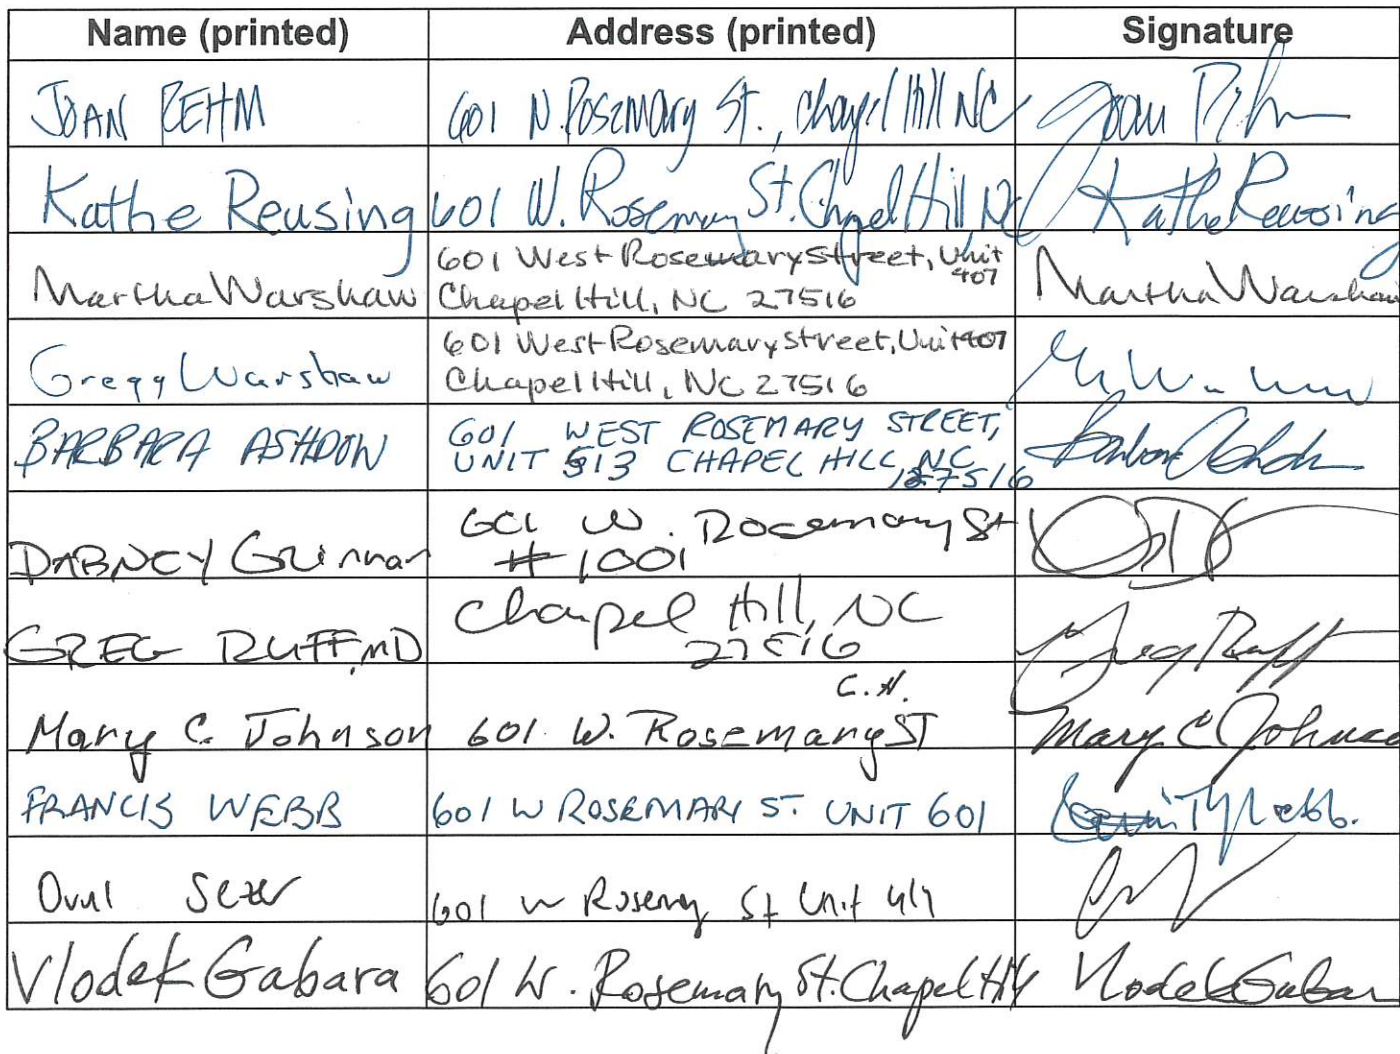 Name (printed) Address (printed) Signature
JOAN REHM 601 N. Rosemary St., Chapel Hill NC Joan Rehm
Kathe Reusing 601 W. Rosemary St. Chapel Hill, NC Kathe Reusing
Martha Warshaw 601 West Rosemary Street, Unit 407
Chapel Hill, NC 27516 Martha Warshaw
Gregg Warshaw 601 West Rosemary Street, Unit 407
Chapel Hill, NC 27516
BARBARA ASHDOW 601 WEST ROSEMARY STREET,
UNIT 513 CHAPEL HILL, NC
27516
DABNEY Grinnan 601 W. Rosemary St
#1001
GREG RUFF, MD Chapel Hill, NC
27516 Greg Ruff
C.H.
Mary C. Johnson 601 W. Rosemary ST Mary C Johnson
FRANCIS WEBB 601 W ROSEMARY ST. UNIT 601
Ovul Sezer 601 W Rosemry St Unit
Vlodek Gabara 601 W. Rosemary St. Chapel Hill Vlodek Gabara